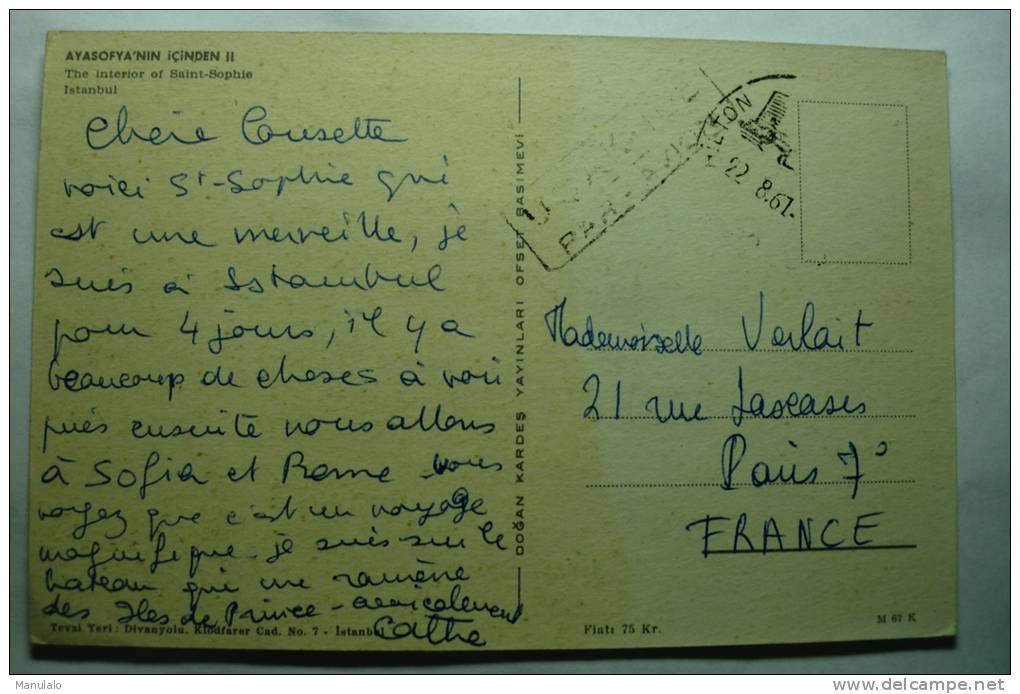 AYASOFYA'NIN İÇİNDEN II
The interior of Saint-Sophie
Istanbul
Chère Cousette
voici St-Sophie qui
est une merveille, je
suis à Istambul
pour 4 jours, il y a
beaucoup de choses à voir
puis ensuite nous allons
à Sofia et Rome vous
voyez que c'est un voyage
magnifique - je suis sur le
bateau qui me ramène
des Iles de Prince - amicalement
Cathe
Tevzi Yeri: Divanyolu, Klodfarer Cad. No. 7 - Istanbul
DOĞAN KARDEŞ YAYINLARI OFSET BASIMEVİ
PAR AVION
HILTON
22.8.67-
Mademoiselle Verlait
21 rue Lascases
Paris 7°
FRANCE
Fiatı 75 Kr.
M 67 K
Manulalo
www.delcampe.net